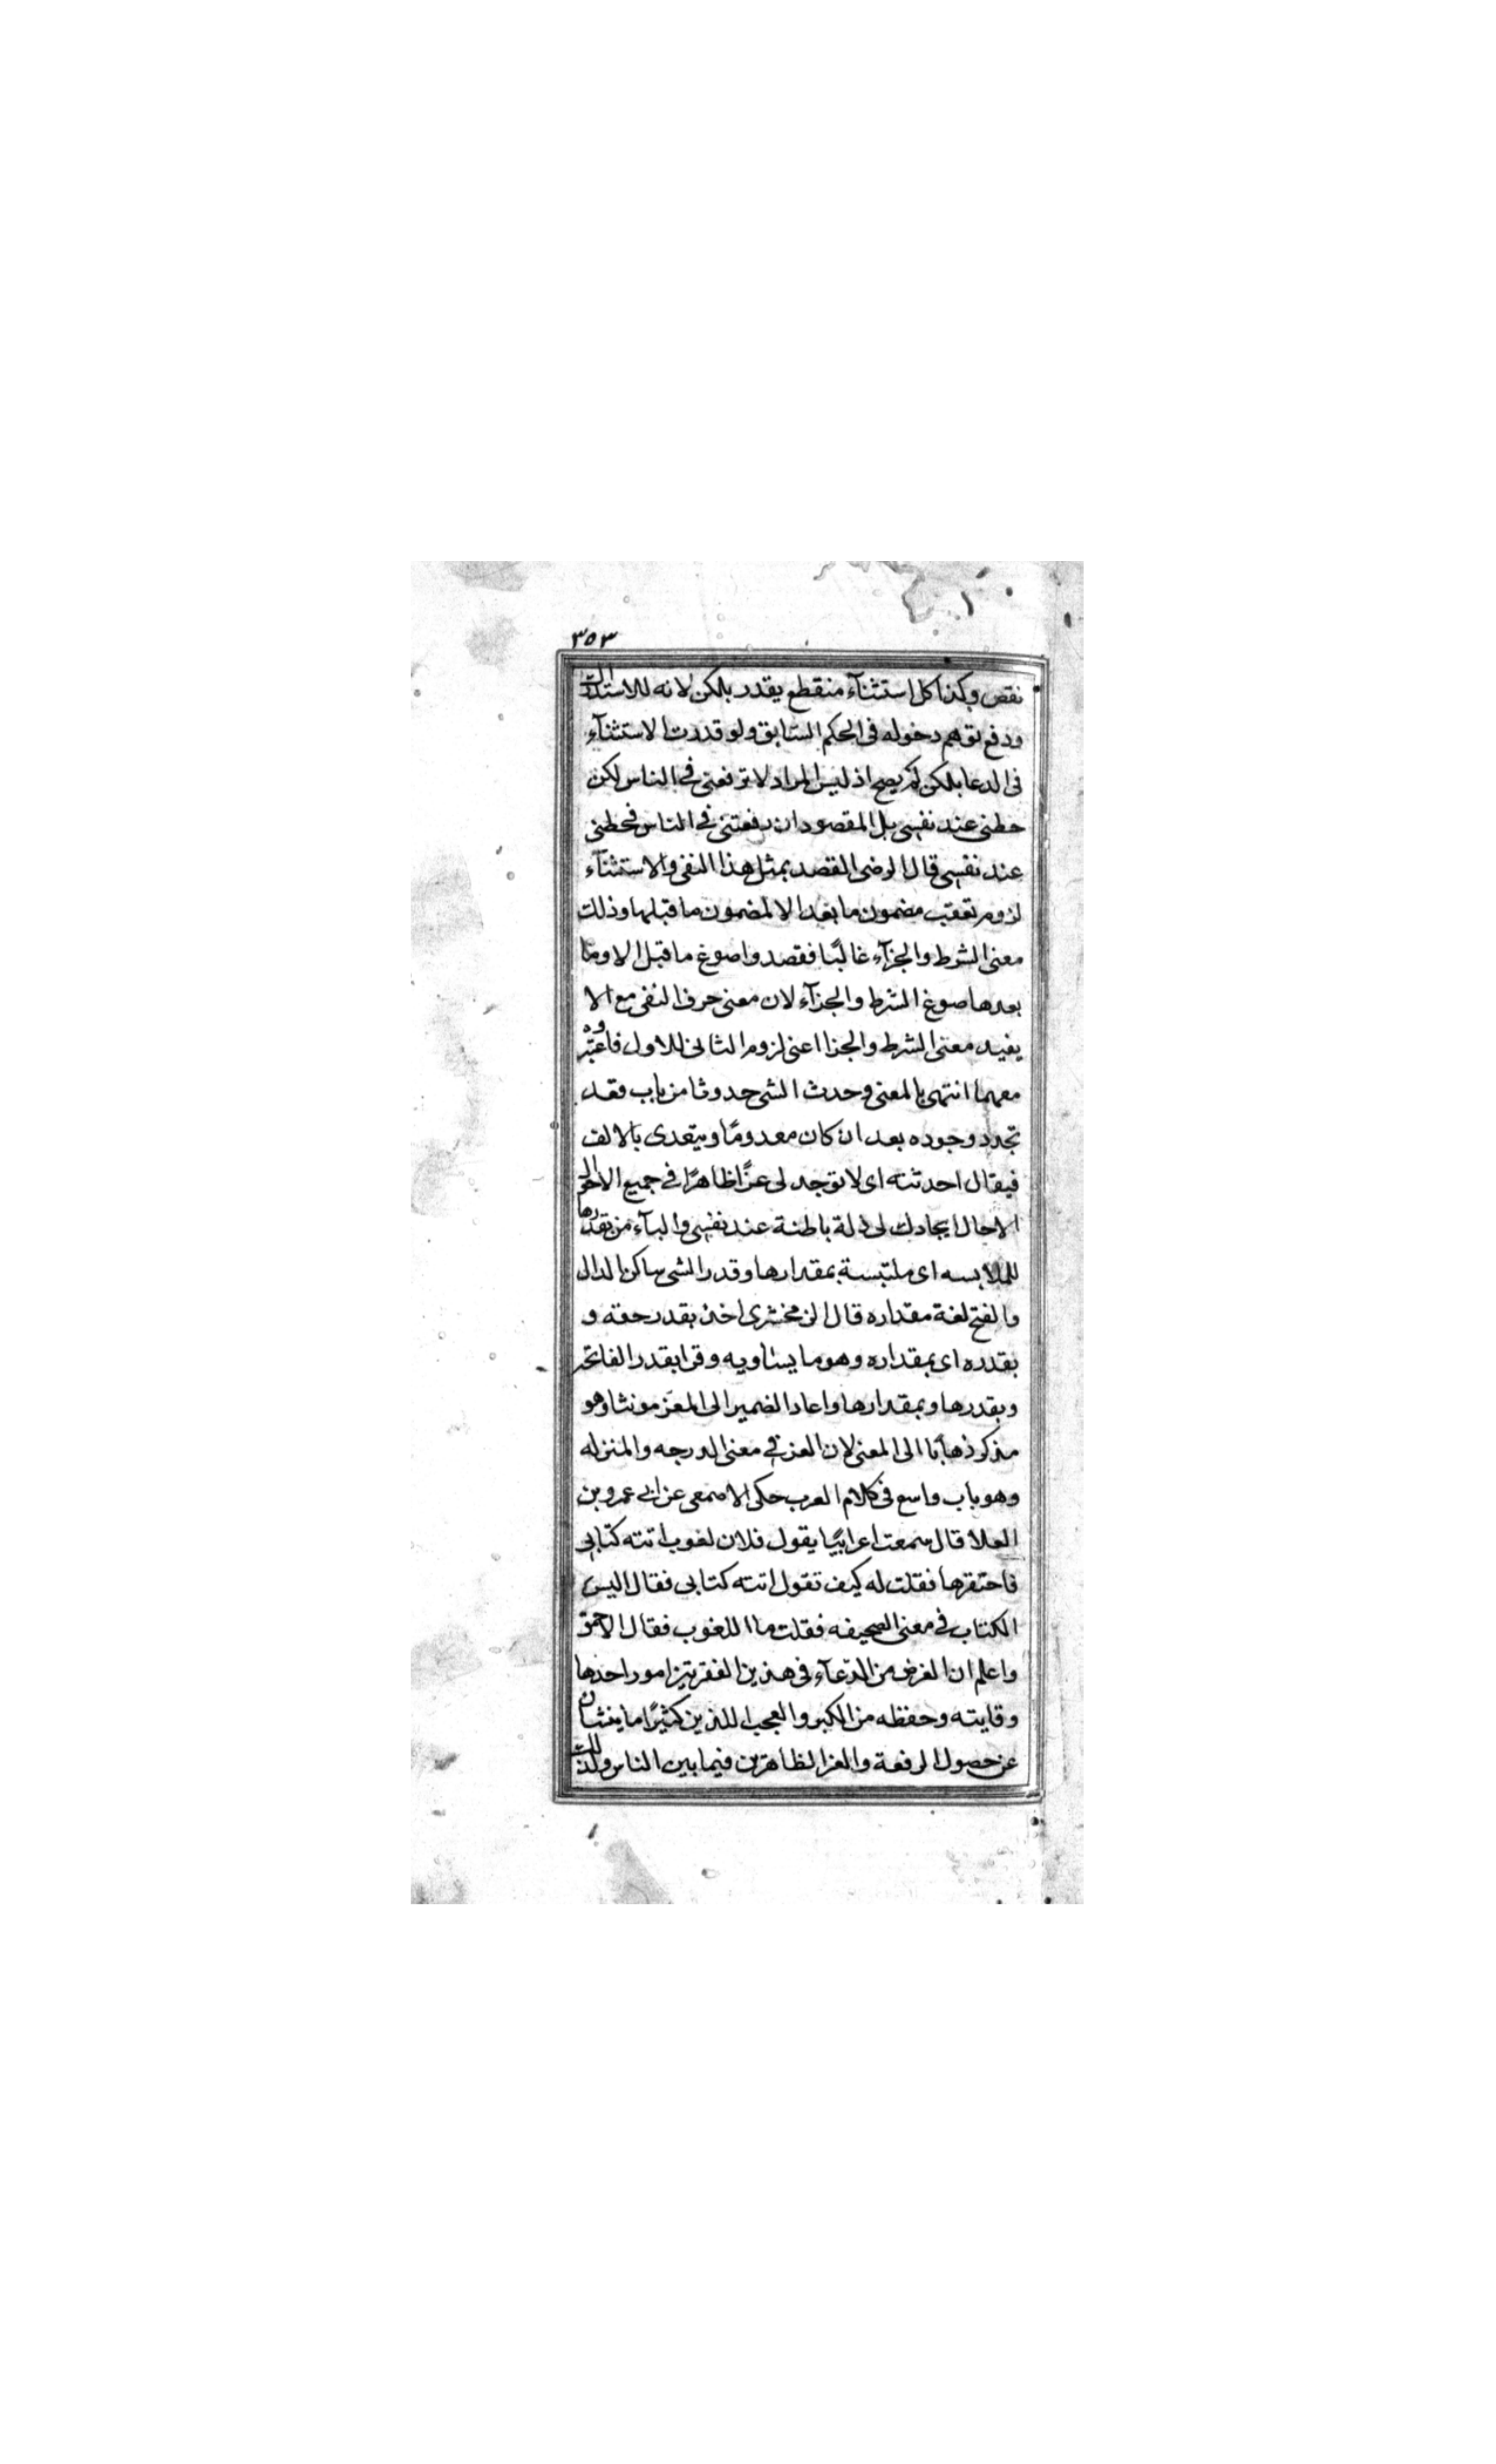 ٣٥٣
نقص وكذا كل استثنآء منقطع يقدر بلكن لانه للاستدراك
ودفع توهم دخوله فى الحكم السّابق ولو قدرت الاستثنآء
فى الدعا بلكن لم يصح اذ ليس المراد لا ترفعنى فى الناس لكن
حطنى عند نفسى بل المقصود ان رفعتنى فى الناس فحطنى
عند نفسى قال الرضى القصد بمثل هذا النفى والاستثنآء
لزوم تعقب مضمون ما بعد الا لمضمون ما قبلها وذلك
معنى الشرط والجزآء غالبًا فقصدوا صوغ ما قبل الا وما
بعدها صوغ الشرط والجزآء لان معنى حرف النفى مع الا
يفيد معنى الشرط والجزا اعنى لزوم الثانى للاول فاعتبروه
معهما انتهى بالمعنى وحدث الشى حدوثا من باب قعد
تجدد وجوده بعد ان كان معدومًا ويتعدى بالالف
فيقال احدثته اى لا توجد لى عزًّا ظاهرًا فى جميع الاحوال
الا حال ايجادك لى ذلة باطنة عند نفسى والبآء من بقدرها
للملابسه اى ملتبسة بمقدارها وقدر الشى ساكن الدال
والفتح لغة مقداره قال الزمخشرى اخذ بقدر حقه و
بقدره اى بمقداره وهو ما يساويه وقرا بقدر الفاتحه
وبقدرها وبمقدارها واعاد الضمير الى العز مونثا وهو
مذكر ذهابًا الى المعنى لان العز فى معنى الدرجه والمنزله
وهو باب واسع فى كلام العرب حكى الاصمعى عن ابى عمرو بن
العلا قال سمعت اعرابيًا يقول فلان لغوب اتته كتابى
فاحتقرها فقلت له كيف تقول اتته كتابى فقال اليس
الكتاب فى معنى الصحيفه فقلت ما اللغوب فقال الاحمق
واعلم ان الغرض من الدّعآء فى هذين الفقرتين امور احدها
وقايته وحفظه من الكبر والعجب اللذين كثيرًا ما ينشان
عن حصول الرفعة والعز الظاهرين فيما بين الناس ولذلك